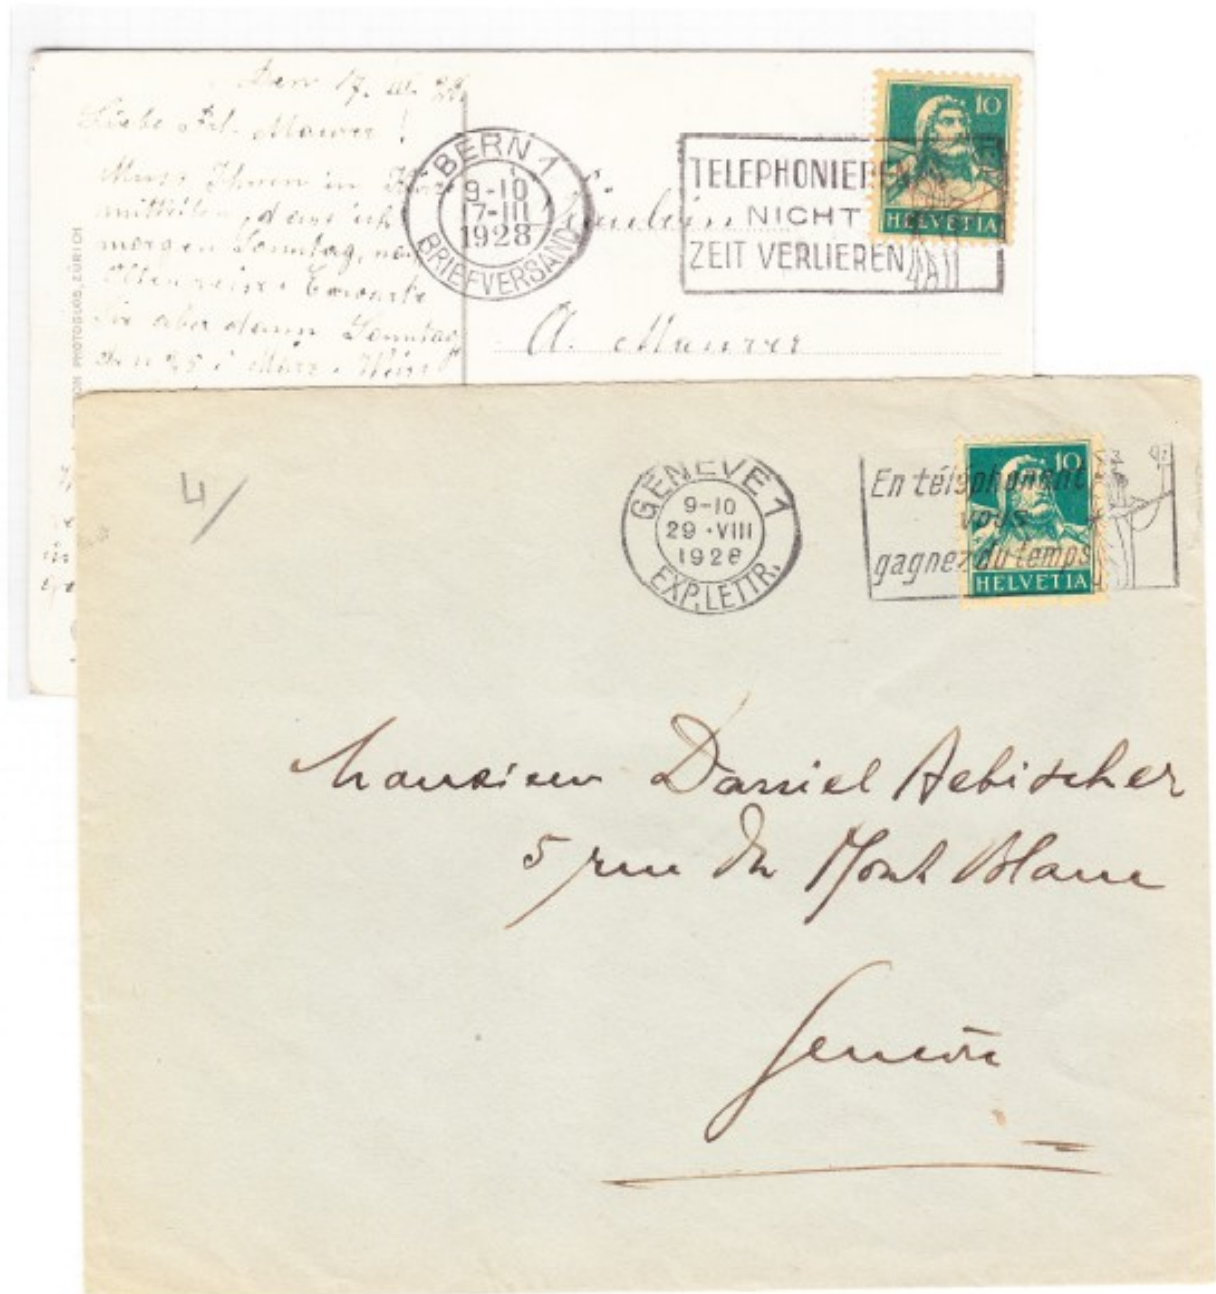 Bern 17. III. 28.
Liebe Frl. Maurer!
Muss Ihnen in
mitteilen, dass ich
morgen Sonntag, na
Erwarte
Sie aber dann Sonntag
den 25. März.
PHOTOGLOB, ZÜRICH
BERN 1
9-10
17-III
1928
BRIEFVERSAND
TELEPHONIEREN
NICHT
ZEIT VERLIEREN
10
HELVETIA
Fräulein
A. Maurer
4/
GENÈVE 1
9-10
29·VIII
1928
EXP. LETTR.
En téléphonant
vous
gagnez du temps
10
HELVETIA
Monsieur Daniel Aebischer
5 rue du Mont Blanc
Genève